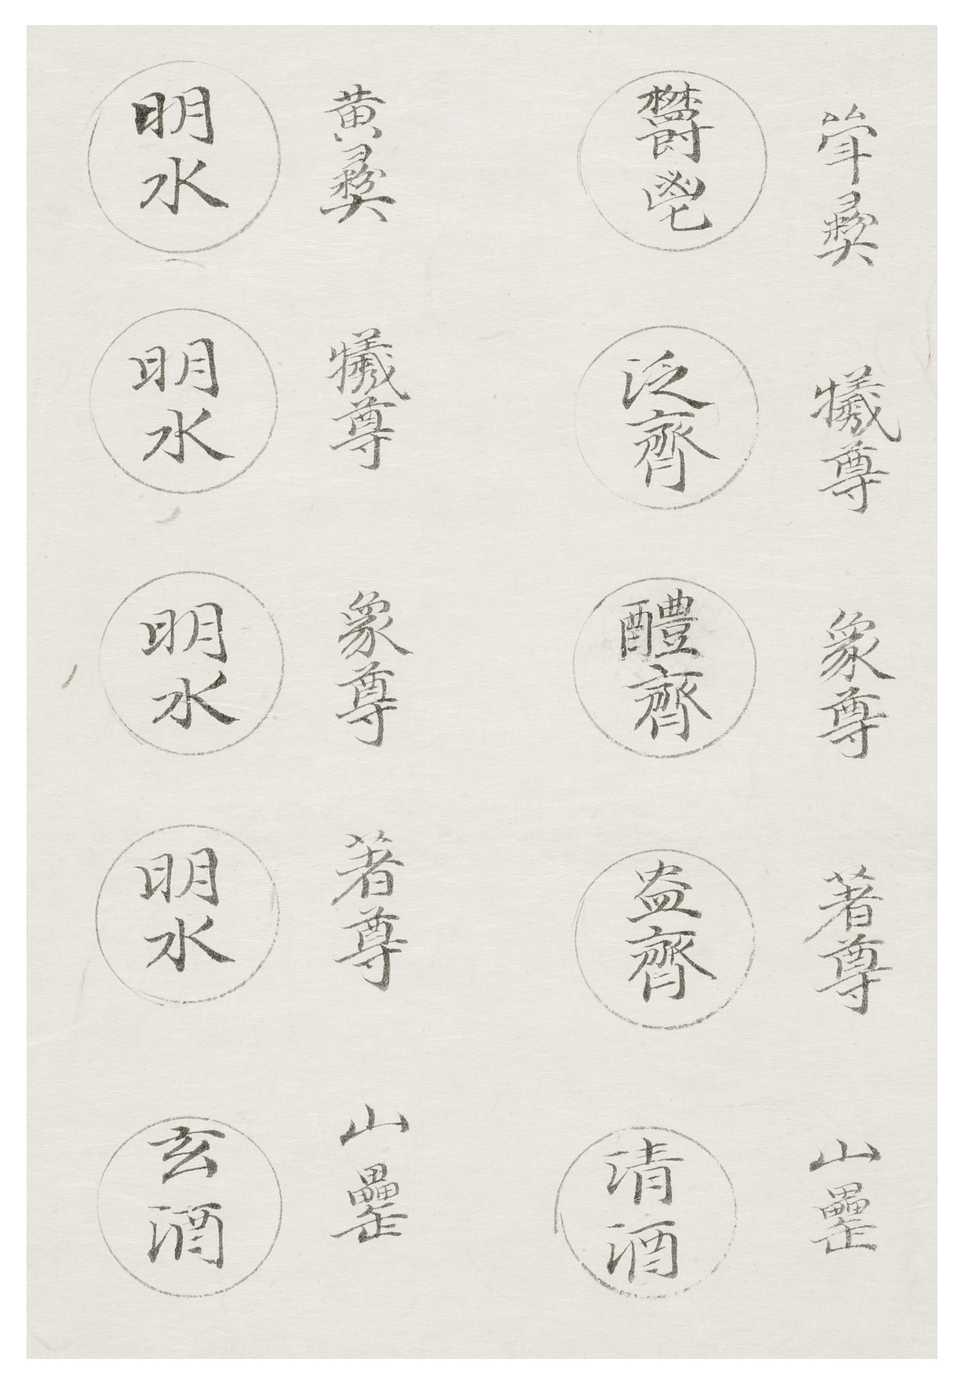 斝彝
犧尊
象尊
著尊
山罍
鬱鬯
泛齊
醴齊
盎齊
清酒
黃彝
犧尊
象尊
著尊
山罍
明水
明水
明水
明水
玄酒